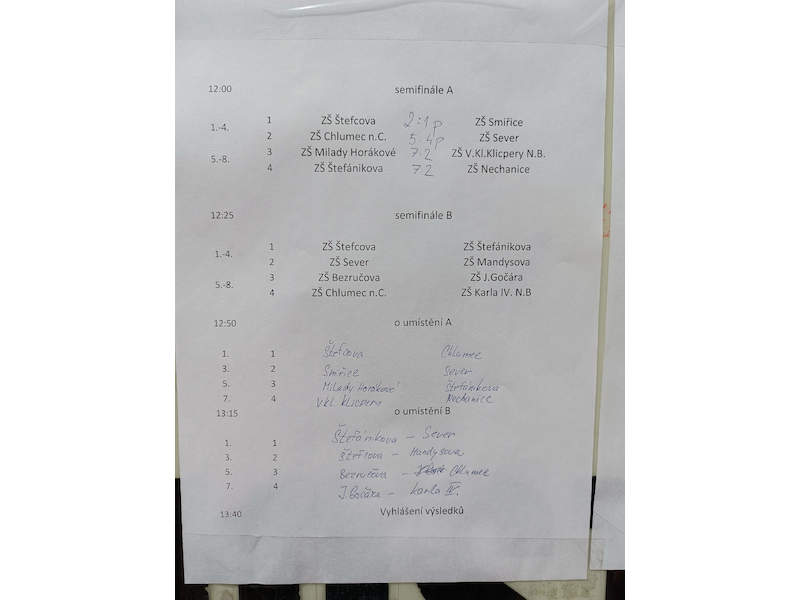 12:00 semifinále A
1 ZŠ Štefcova 2:1p ZŠ Smiřice
1.-4.
2 ZŠ Chlumec n.C. 5:4p ZŠ Sever
3 ZŠ Milady Horákové 7:2 ZŠ V.Kl.Klicpery N.B.
5.-8.
4 ZŠ Štefánikova 7:2 ZŠ Nechanice
12:25 semifinále B
1 ZŠ Štefcova ZŠ Štefánikova
1.-4.
2 ZŠ Sever ZŠ Mandysova
3 ZŠ Bezručova ZŠ J.Gočára
5.-8.
4 ZŠ Chlumec n.C. ZŠ Karla IV. N.B
12:50 o umístění A
1. 1 Štefcova Chlumec
3. 2 Smiřice Sever
5. 3 Milady Horákové Štefánikova
7. 4 V.Kl. Klicpery Nechanice
13:15 o umístění B
1. 1 Štefánikova – Sever
3. 2 Štefcova – Mandysova
5. 3 Bezručova – Chlumec
7. 4 J. Gočára – Karla IV.
13:40 Vyhlášení výsledků